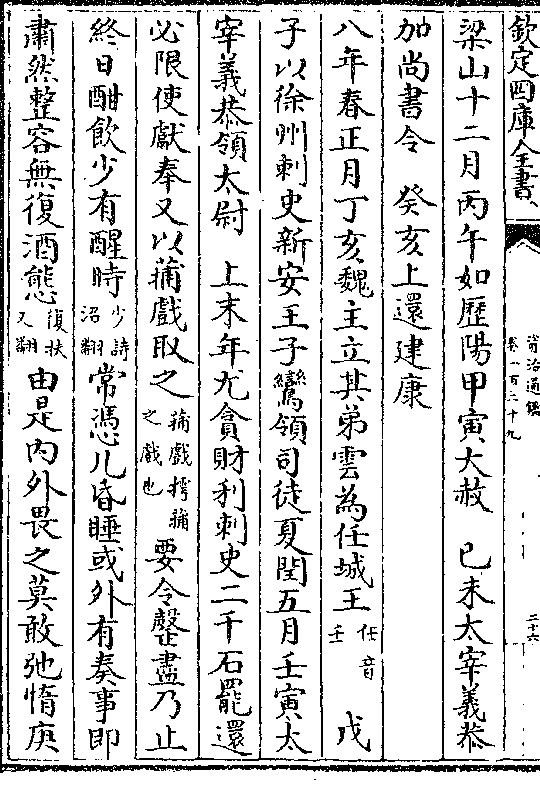 欽定四庫全書
資治通鑑
卷一百二十九
二十六
梁山十二月丙午如歴陽甲寅大赦　己未太宰義恭
加尚書令　癸亥上還建康
八年春正月丁亥魏主立其弟雲為任城王任音壬　戊
子以徐州刺史新安王子鸞領司徒夏閏五月壬寅太
宰義恭領太尉　上末年尤貪財利刺史二千石罷還
必限使獻奉又以蒱戲取之蒱戲摴蒱之戲也要令罄盡乃止
終日酣飲少有醒時少詩沼翻常憑几昏睡或外有奏事即
肅然整容無復酒態復扶又翻由是内外畏之莫敢弛惰庚